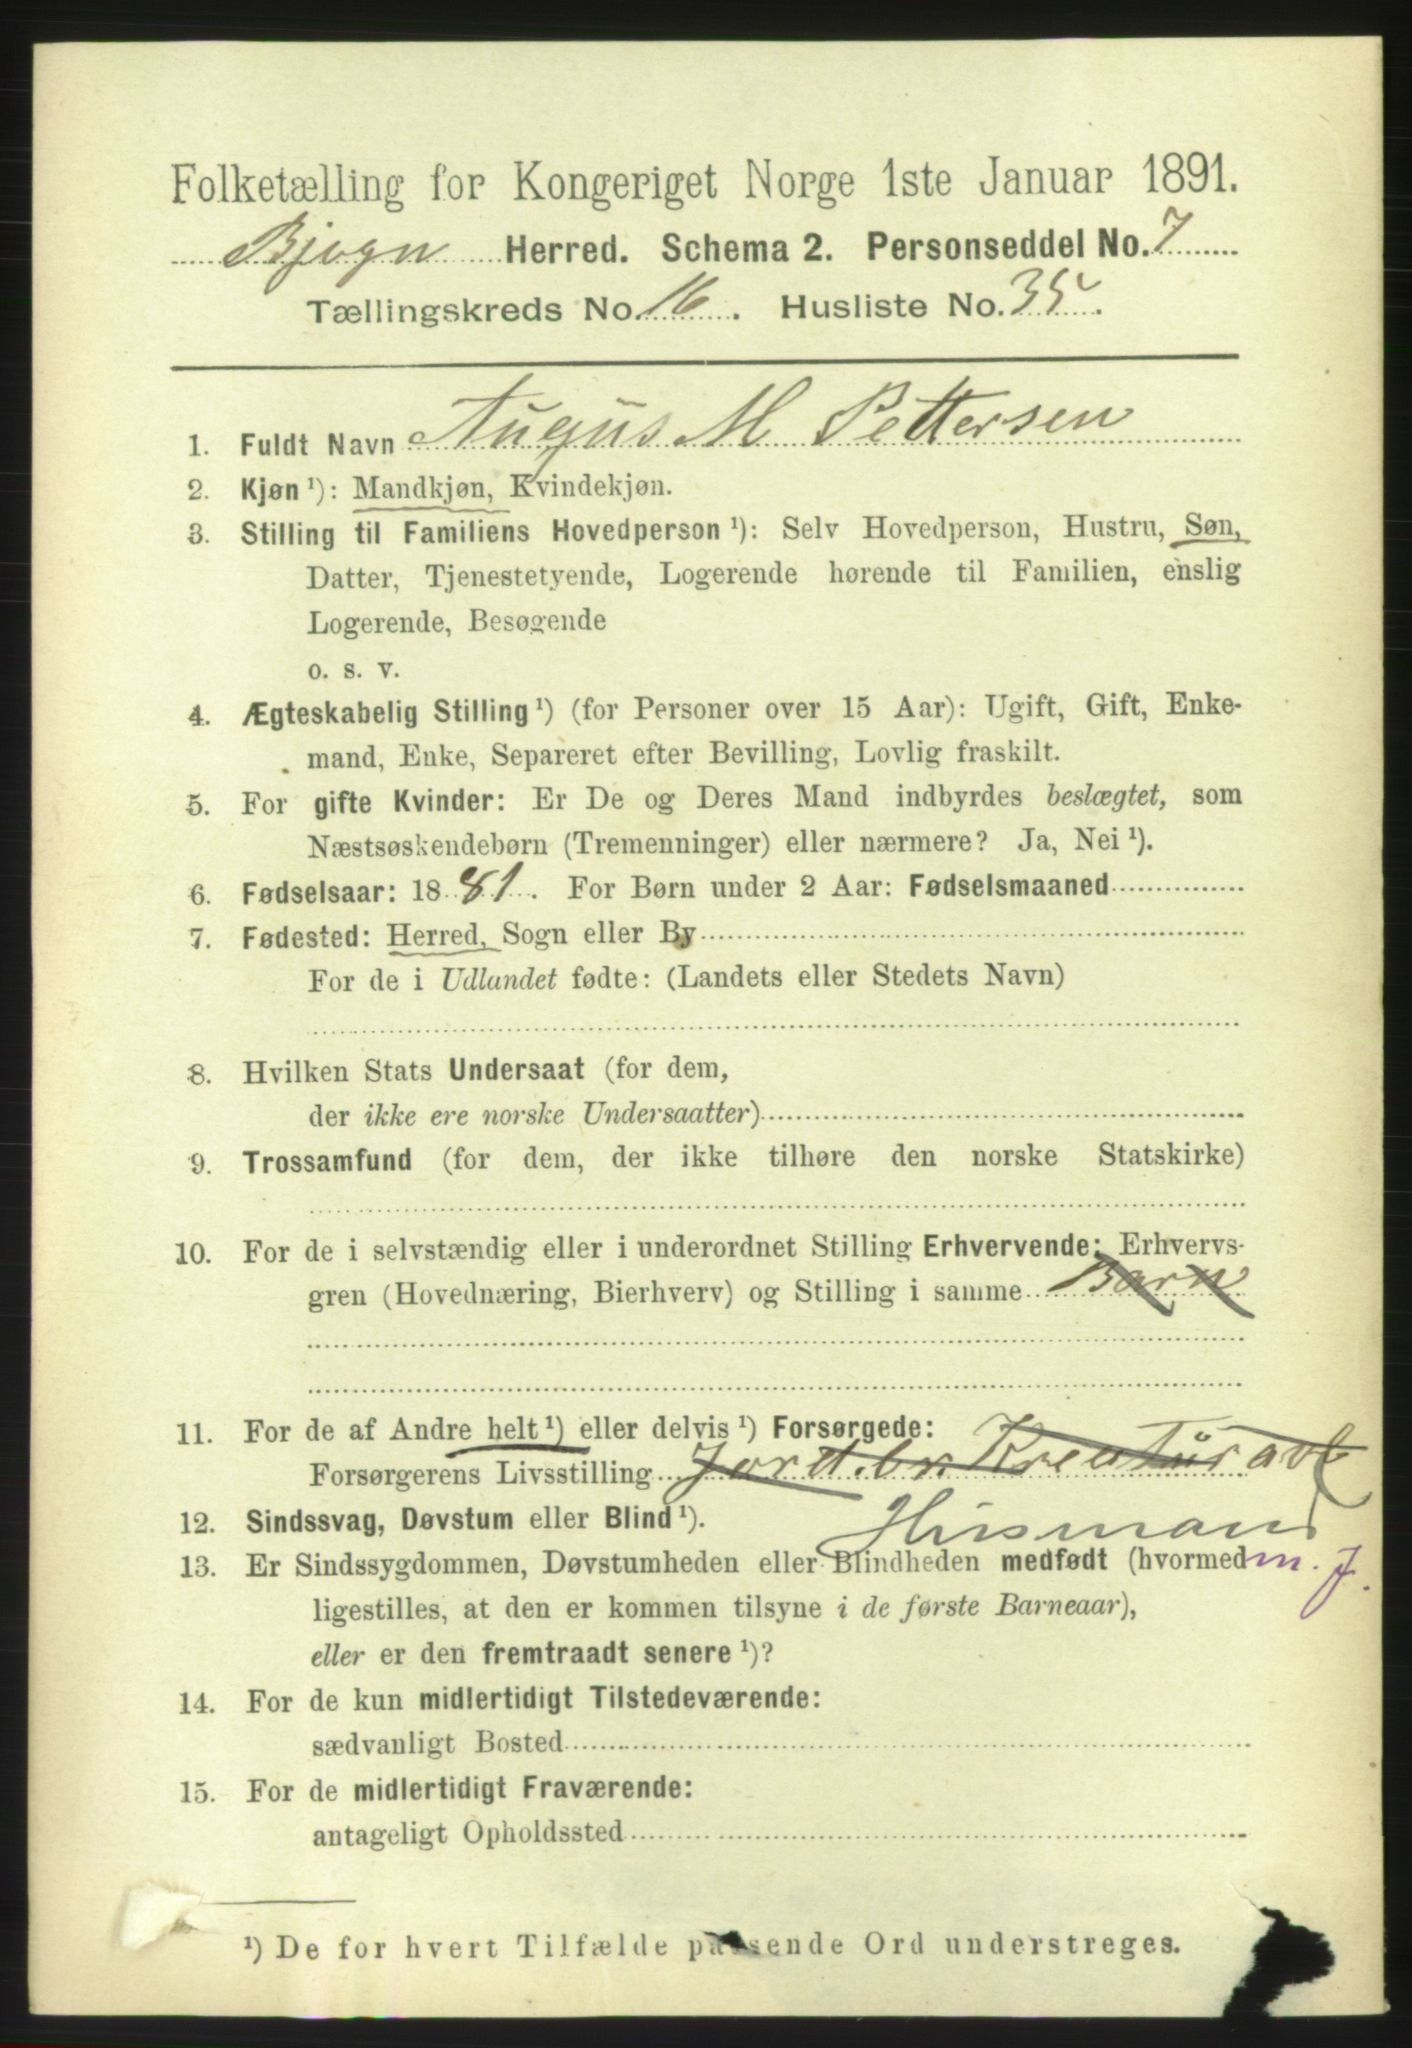 Folketælling for Kongeriget Norge 1ste Januar 1891.
Bjogn Herred. Schema 2. Personseddel No. 7
Tællingskreds No. 16. Husliste No. 35.
1. Fuldt Navn Augus M Pettersen
2. Kjøn ¹): Mandkjøn, Kvindekjøn.
3. Stilling til Familiens Hovedperson ¹): Selv Hovedperson, Hustru, Søn,
Datter, Tjenestetyende, Logerende hørende til Familien, enslig
Logerende, Besøgende
o. s. v.
4. Ægteskabelig Stilling ¹) (for Personer over 15 Aar): Ugift, Gift, Enke-
mand, Enke, Separeret efter Bevilling, Lovlig fraskilt.
5. For gifte Kvinder: Er De og Deres Mand indbyrdes beslægtet, som
Næstsøskendebørn (Tremenninger) eller nærmere? Ja, Nei ¹).
6. Fødselsaar: 1881. For Børn under 2 Aar: Fødselsmaaned
7. Fødested: Herred, Sogn eller By
For de i Udlandet fødte: (Landets eller Stedets Navn)
8. Hvilken Stats Undersaat (for dem,
der ikke ere norske Undersaatter)
9. Trossamfund (for dem, der ikke tilhøre den norske Statskirke)
10. For de i selvstændig eller i underordnet Stilling Erhvervende: Erhvervs-
gren (Hovednæring, Bierhverv) og Stilling i samme Barn
11. For de af Andre helt ¹) eller delvis ¹) Forsørgede:
Forsørgerens Livsstilling Jordbr. Kreaturavl
Husmand
12. Sindssvag, Døvstum eller Blind ¹).
13. Er Sindssygdommen, Døvstumheden eller Blindheden medfødt (hvormed m. J.
ligestilles, at den er kommen tilsyne i de første Barneaar),
eller er den fremtraadt senere ¹)?
14. For de kun midlertidigt Tilstedeværende:
sædvanligt Bosted
15. For de midlertidigt Fraværende:
antageligt Opholdssted
¹) De for hvert Tilfælde passende Ord understreges.